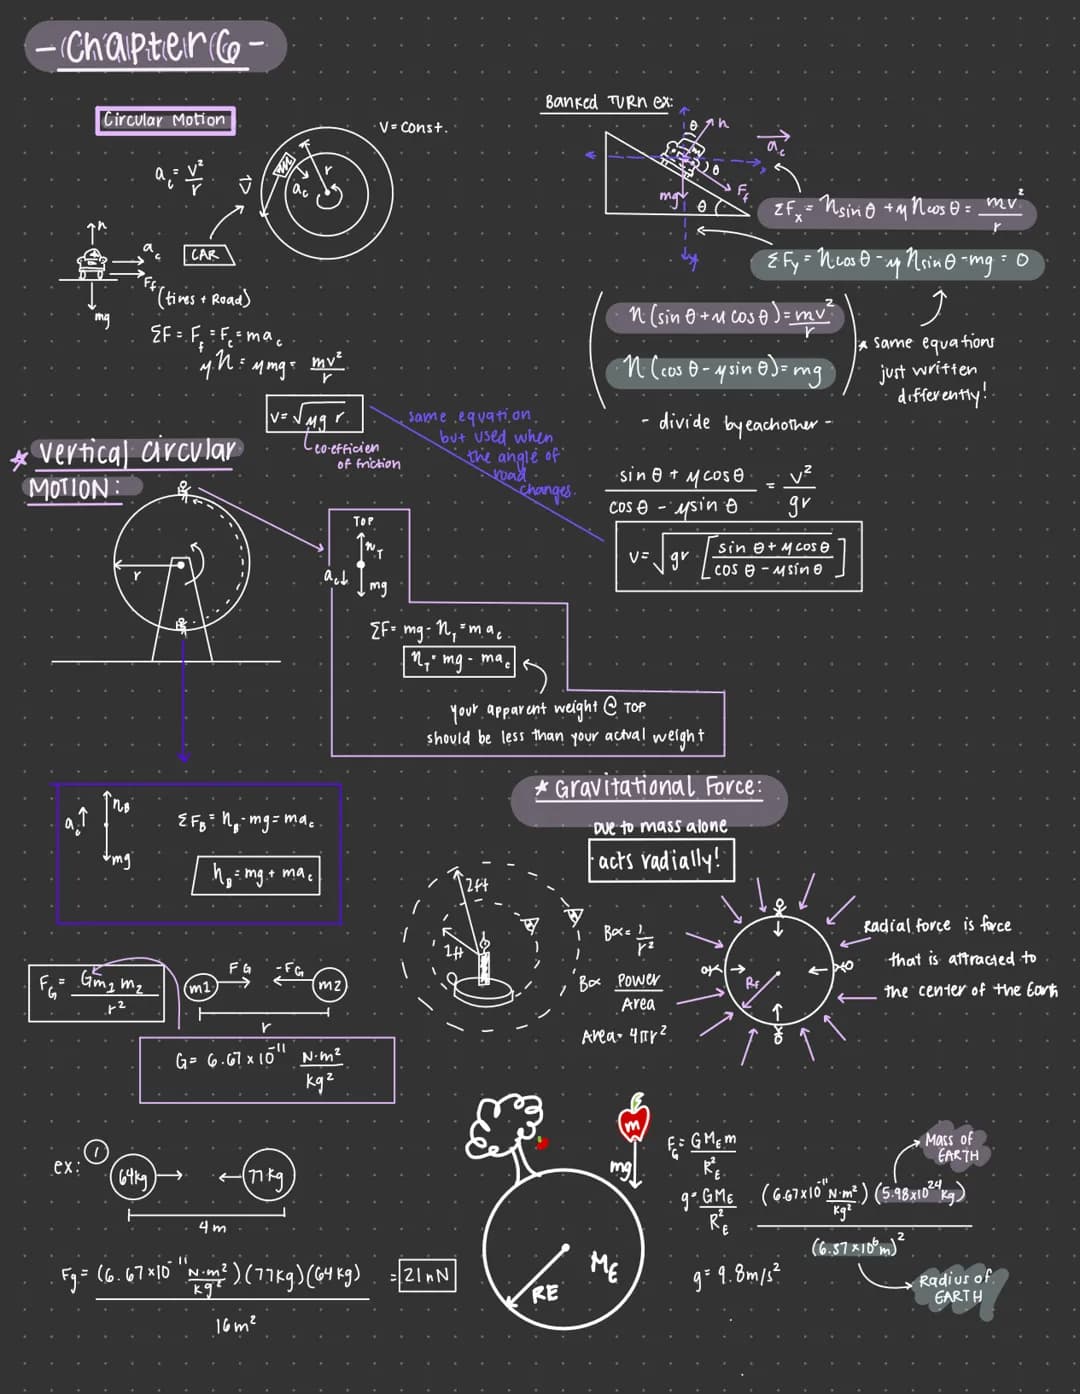 - Chapter 6 -
Circular Motion
V = const.
a_c = v²/r
V
r
a_c
CAR
n
a_c
F_f
(tires + Road)
mg
ΣF = F_f = F_c = ma_c
μn = μmg = mv²/r
v = √μg r
co-efficien
of friction
same equation
but used when
the angle of
road
changes.
Banked TURN ex:
θ
n
a_c
θ
F_f
mg
θ
ΣF_x = n sin θ + μ n cos θ = mv²/r
ΣF_y = n cos θ - μ n sin θ - mg = 0
n (sin θ + μ cos θ) = mv²/r
n (cos θ - μ sin θ) = mg
* same equations
just written
differently!
- divide by eachother -
sin θ + μ cos θ / cos θ - μ sin θ = v²/gr
v = √gr [sin θ + μ cos θ / cos θ - μ sin θ]
* Vertical Circular
MOTION:
r
TOP
n_T
a_c↓
mg
ΣF = mg - n_T = m a_c
n_T = mg - ma_c
your apparent weight @ TOP
should be less than your actual weight
a_c↑
n_B
mg
ΣF_B = n_B - mg = ma_c
n_B = mg + ma_c
* Gravitational Force:
Due to mass alone
acts radially!
2ft
1ft
B ∝ 1/r²
B ∝ Power/Area
Area = 4πr²
Radial force is force
that is attracted to
the center of the Earth
F_G = Gm₁ m₂/r²
m1
FG
-FG
m2
r
G = 6.67 x 10⁻¹¹ N·m²/kg²
ex: 1
64kg
77kg
4 m
Fg = (6.67 x10⁻¹¹ N·m²/kg²)(77kg)(64kg)/16m² = 21 nN
m
mg
M_E
RE
F_G = G M_E m/R²_E
g = GM_E/R²_E
(6.67x10⁻¹¹ N·m²/kg²)(5.98x10²⁴ kg)
(6.37 x10⁶m)²
Mass of
EARTH
g = 9.8m/s²
Radius of
EARTH